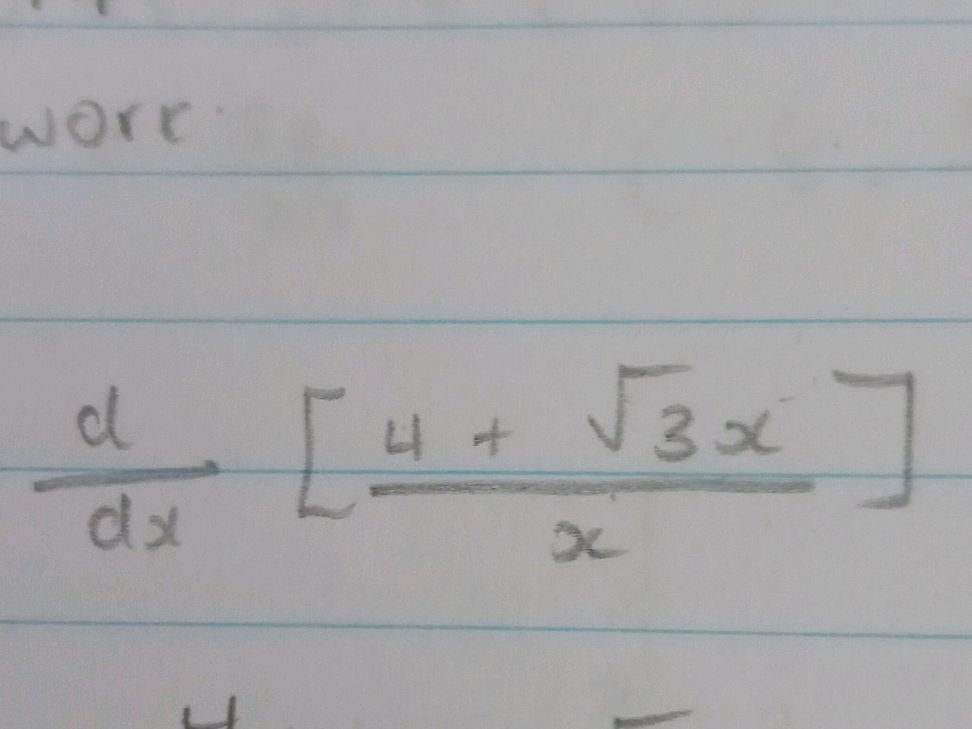 work
d/dx [(4 + √3x)/x]